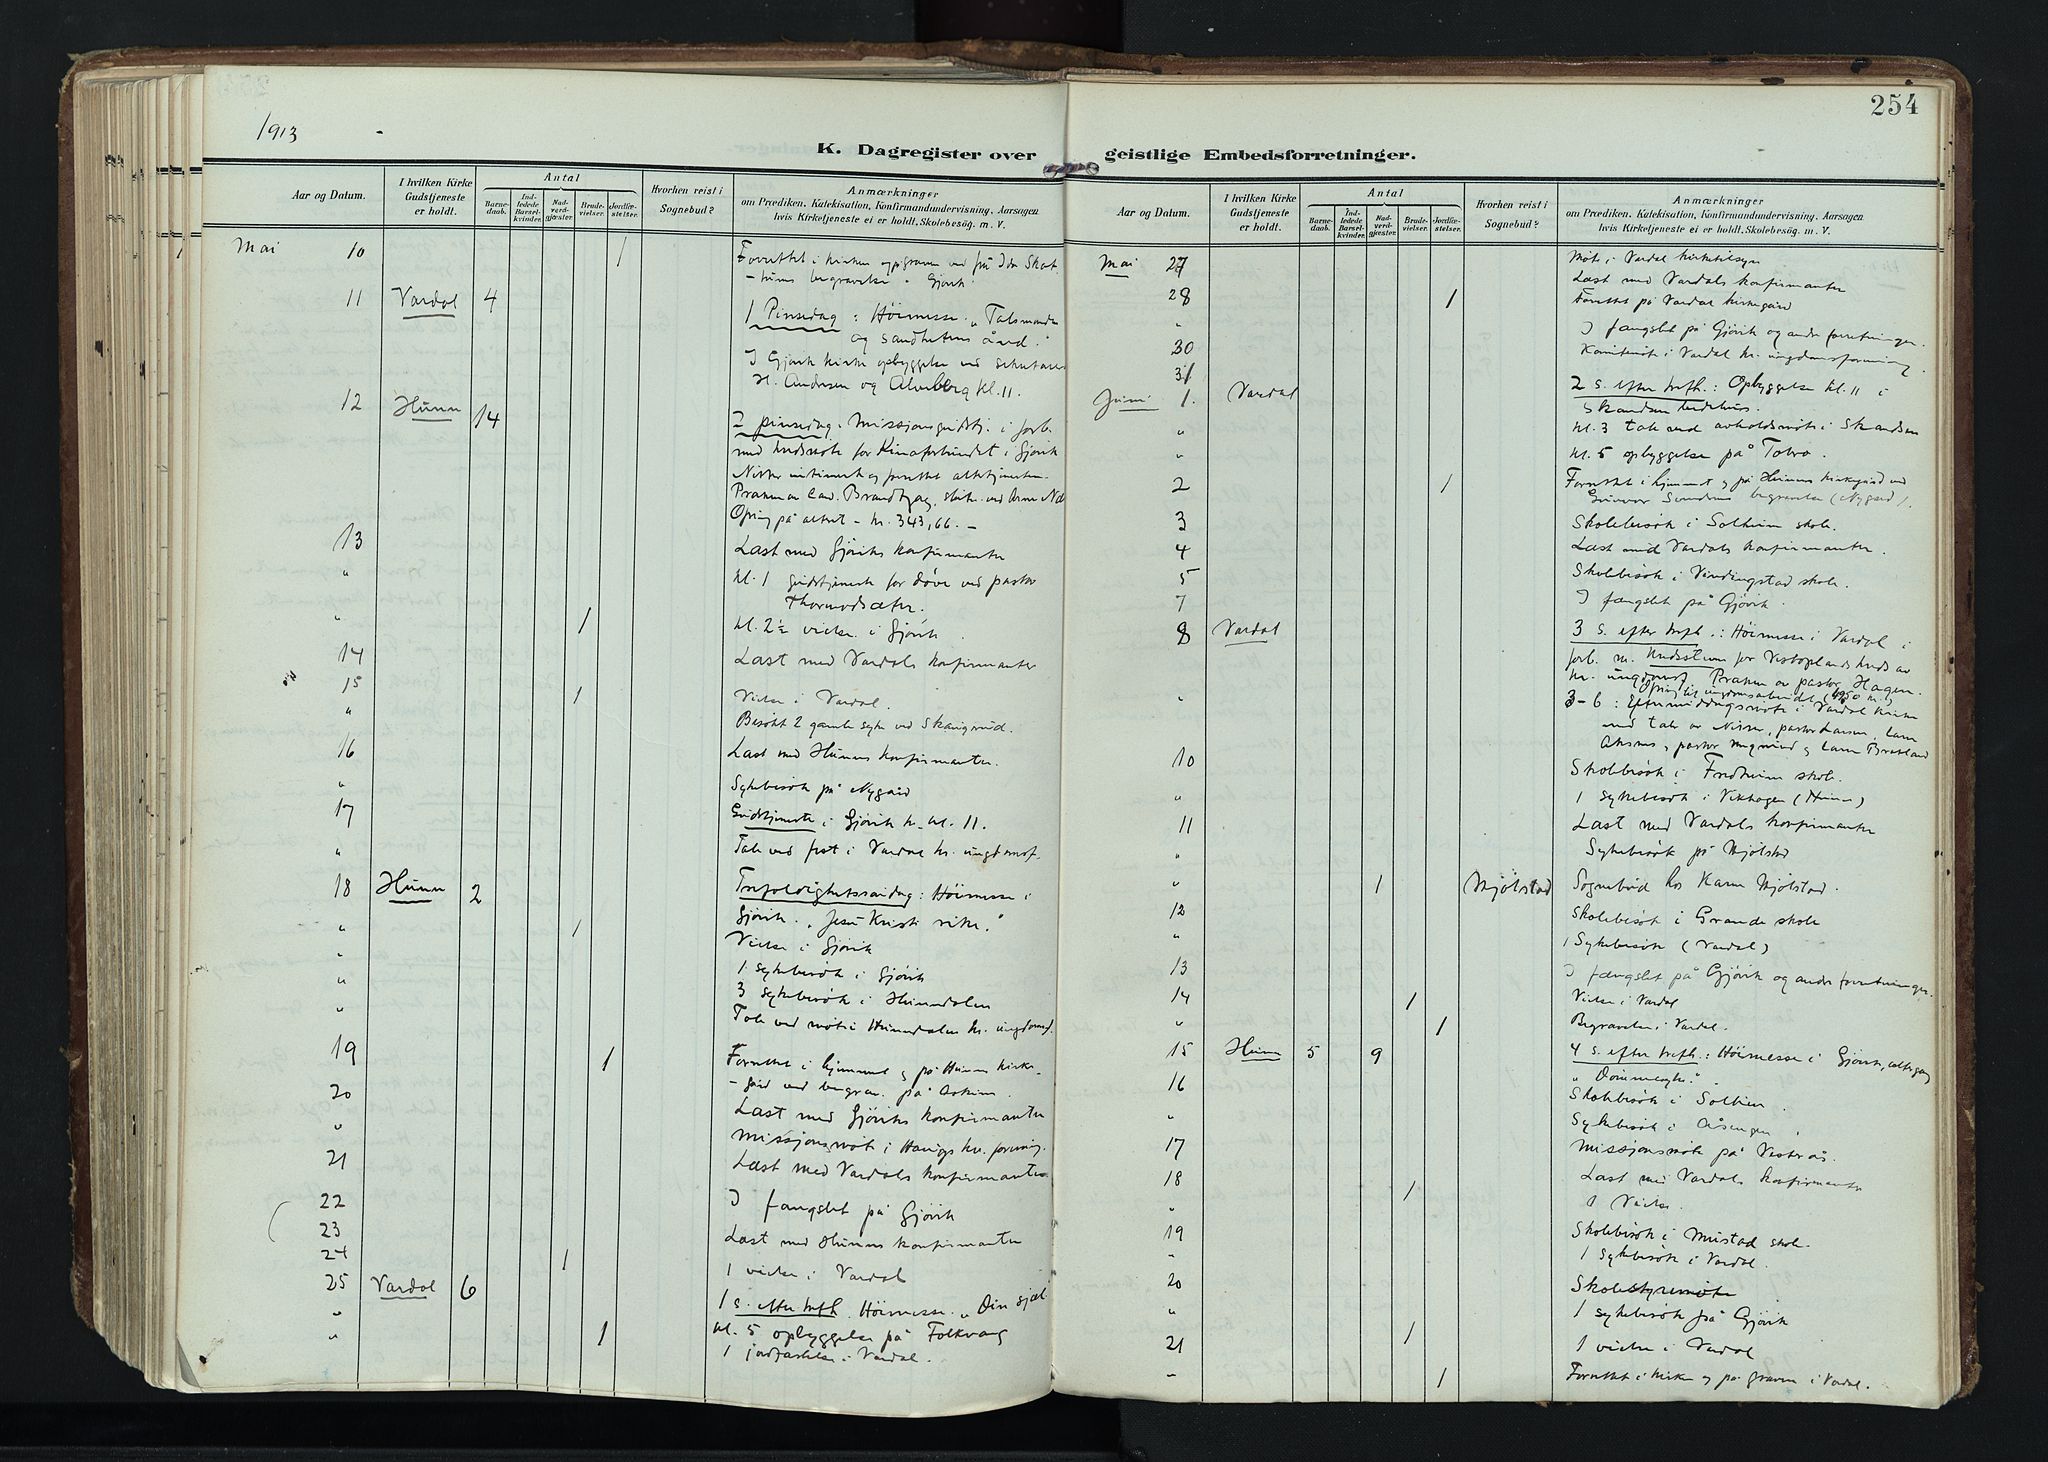 254
1913
K. Dagregister over geistlige Embedsforretninger.
Aar og Datum.
I hvilken Kirke Gudstjeneste er holdt.
Antal
Barne-daab.
Ind-ledede Barsel-kvinder.
Nad-verd-gjæster.
Brude-vielser.
Jordfæ-stelser.
Hvorhen reist i Sognebud?
Anmærkninger
om Prædiken, Katekisation, Konfirmandundervisning, Aarsagen
hvis Kirketjeneste ei er holdt, Skolebesög. m. V.
1 Mai 10 1 Forrettet i kirken og på graven ved
begravelse i Gjövik
11 Vardal 4 1 Pinsedag: Höimesse. "Talsmanden
og sandhetens ånd."
I Gjövik kirke opbyggelse ved sekretær
H. Andersen og Alvberg kl. 11.
12 Hunn 14 2 pinsedag. Missjonsgudstj. i forb.
med kredsmöte for Kinaforbundet i Gjövik
forrettet altertjenesten.
Ofring på altret – kr. 343,66. –
13 Læst med Gjöviks konfirmanter
" kl. 1 gudstjeneste for döve ved pastor
Thormodsæter.
" 1 kl. 2½ vielse i Gjövik.
14 Læst med Vardals konfirmanter
15 1 Vielse i Vardal.
" Besökt 2 gamle syke ved
16 Læst med Hunns konfirmanter.
" Sykebesök på Nygard
17 Gudstjeneste i Gjövik k. kl. 11.
" Tale ved fest i Vardal kr. ungdomsf.
18 Hunn 2 Trefoldighetssöndag: Höimesse i
Gjövik. "Jesu Kristi rike."
" 1 Vielse i Gjövik
" 1 sykebesök i Gjövik
" 3 sykebesök i Hunndalen
" Tale ved möte i Hunndalen kr. ungdomsf.
19 1 Forrettet i hjemmet og på Hunns kirke-
gård ved begrav. på
20 Læst med Gjöviks konfirmanter
" Missjonsmöte i kv. forening.
21 Læst med Vardals konfirmanter
22 I fængslet på Gjövik
23 Læst med Hunns konfirmanter
24 1 1 vielse i Vardal
25 Vardal 6 1 s. efter trefh. Höimesse. "Din sjæl
" kl. 5 opbyggelse på Folkvang
" 1 1 jordfæstelse i Vardal.
Aar og Datum.
I hvilken Kirke Gudstjeneste er holdt.
Antal
Barne-daab.
Ind-ledede Barsel-kvinder.
Nad-verd-gjæster.
Brude-vielser.
Jordfæ-stelser.
Hvorhen reist i Sognebud?
Anmærkninger
om Prædiken, Katekisation, Konfirmandundervisning, Aarsagen
hvis Kirketjeneste ei er holdt, Skolebesög. m. V.
Mai 27 Möt i Vardal kirketilsyn
28 Læst med Vardals konfirmanter
1 Forrettet på Vardal kirkegård
" I fængslet på Gjövik og andre forretninger.
30 Komitemöte i Vardal kr. ungdomsforening.
31
Juni 1. Vardal 2 s. efter trefh.: Opbyggelse kl. 11 i
Skandsen bedehus.
" kl. 3 tale ved avholdsmöte i Skandsen
" kl. 5 opbyggelse på Tobro.
2 1 Forrettet i hjemmet og på Hunns kirkegård ved
begravelse (Nygard).
3 Skolebesök i Solheim skole.
4 Læst med Vardals konfirmanter.
5 Skolebesök i Vindingstad skole.
7 I fængslet på Gjövik.
8 Vardal 3 s. efter trefh.: Höimesse i Vardal i
forb. m. kredsstevne for Vestoplands kreds av
kr. ungdomsf. Præken av pastor Hagen.
Ofring til ungdomsarbeidet
" 3–6: Eftermiddagsmöte i Vardal kirke
med tale av Nisse, pastor Larsen, lærer
pastor og lærer
10 Skolebesök i Fredheim skole.
" 1 sykebesök i Vikhagen (Hunn)
11 Læst med Vardals konfirmanter
" Sykebesök på Mjölstad
" 1 Mjölstad Sognebud hos Karen Mjölstad.
12 Skolebesök i Grande skole
" 1 Sykebesök (Vardal)
13 I fængslet på Gjövik og andre forretninger.
14 1 Vielse i Vardal
" 1 Begravelse i Vardal.
15 Hunn 5 9 4 s. efter trefh.: Höimesse i Gjövik, altergang
"Dömmesyke."
16 Skolebesök i Solheim.
" Sykebesök i Åsengen.
17 Missjonsmöte på Vesterås.
18 Læst med Vardals konfirmanter
" 1 1 Vielse.
19 Skolebesök i Mustad skole.
" 1 sykebesök i Vardal.
20 Skolestyremöte
" 1 sykebesök på Gjövik
21 1 1 vielse i Vardal
" 1 Forrettet i kirken og på graven i Vardal.